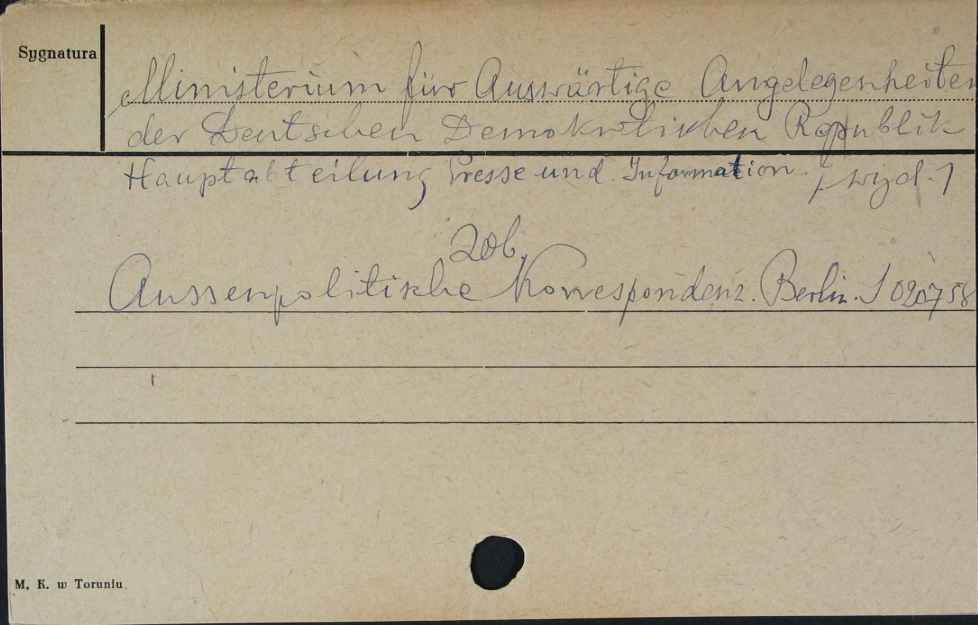 Sygnatura
Ministerium für Auswärtige Angelegenheiten
der Deutschen Demokratischen Republik
Hauptabteilung Presse und Information. / wyd. /
zob.
Aussenpolitische Korrespondenz. Berlin. J 020758
M. K. w Toruniu